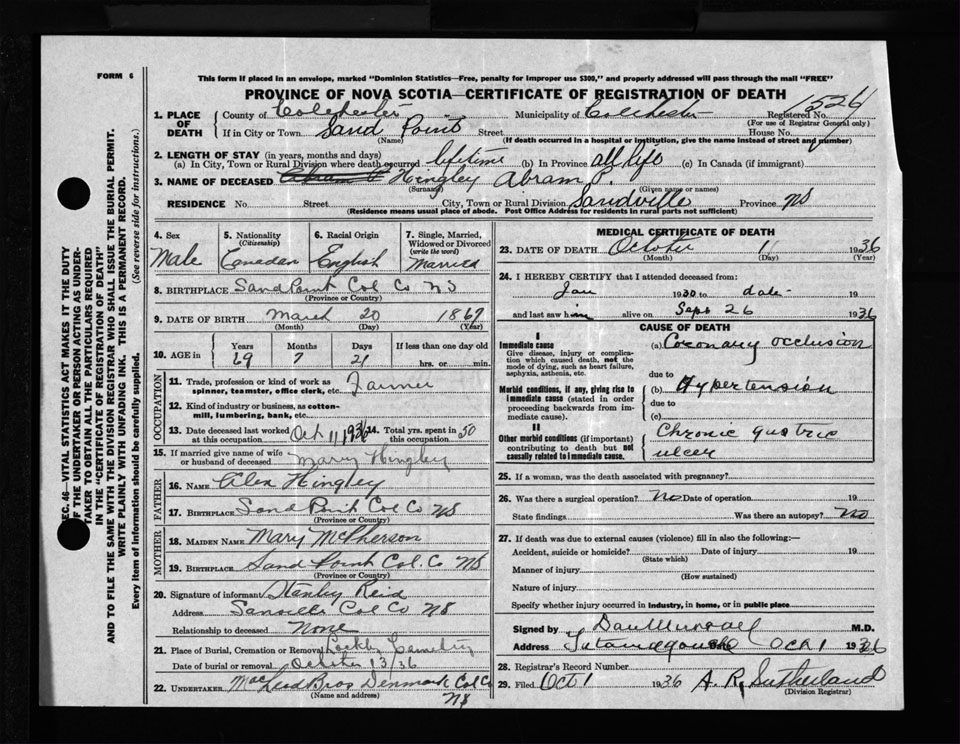 FORM 6
This form if placed in an envelope, marked "Dominion Statistics—Free, penalty for improper use $300," and properly addressed will pass through the mail "FREE"
PROVINCE OF NOVA SCOTIA—CERTIFICATE OF REGISTRATION OF DEATH
1. PLACE OF DEATH County of Colchester Municipality of Colchester Registered No. 1526
(For use of Registrar General only)
If in City or Town Sand Point Street House No.
(Name) (If death occurred in a hospital or institution, give the name instead of street and number)
2. LENGTH OF STAY (in years, months and days)
(a) In City, Town or Rural Division where death occurred lifetime (b) In Province all life (c) In Canada (if immigrant)
3. NAME OF DECEASED Hingley Abram P.
(Surname) (Given name or names)
RESIDENCE No. Street City, Town or Rural Division Sandville Province NS
(Residence means usual place of abode. Post Office Address for residents in rural parts not sufficient)
4. Sex
Male
5. Nationality
(Citizenship)
Canadian
6. Racial Origin
English
7. Single, Married, Widowed or Divorced
(write the word)
Married
8. BIRTHPLACE Sand Point Col Co NS
(Province or Country)
9. DATE OF BIRTH March 20 1867
(Month) (Day) (Year)
10. AGE in Years Months Days If less than one day old
69 7 21 hrs. or min.
OCCUPATION
11. Trade, profession or kind of work as spinner, teamster, office clerk, etc. Farmer
12. Kind of industry or business, as cotton-mill, lumbering, bank, etc.
13. Date deceased last worked at this occupation Oct 11 1936 14. Total yrs. spent in this occupation 50
15. If married give name of wife or husband of deceased Mary Hingley
FATHER
16. NAME Alex Hingley
17. BIRTHPLACE Sand Point Col Co NS
(Province or Country)
MOTHER
18. MAIDEN NAME Mary McPherson
19. BIRTHPLACE Sand Point Col. Co NS
(Province or Country)
20. Signature of informant Stanley Reid
Address Col Co NS
Relationship to deceased None
21. Place of Burial, Cremation or Removal Cemetry
Date of burial or removal October 13/36
22. UNDERTAKER MacLeod Bros Denmark Col Co
(Name and address) NS
MEDICAL CERTIFICATE OF DEATH
23. DATE OF DEATH October 11 1936
(Month) (Day) (Year)
24. I HEREBY CERTIFY that I attended deceased from:
Jan 1930 to date- 19
and last saw him alive on Sept 26 1936
CAUSE OF DEATH
I
Immediate cause
Give disease, injury or complication which caused death, not the mode of dying, such as heart failure, asphyxia, asthenia, etc.
(a) Coronary occlusion
due to
Morbid conditions, if any, giving rise to immediate cause (stated in order proceeding backwards from immediate cause).
(b) Hypertension
due to
(c)
II
Other morbid conditions (if important) contributing to death but not causally related to immediate cause.
Chronic gastric
ulcer
25. If a woman, was the death associated with pregnancy?
26. Was there a surgical operation? No Date of operation 19
State findings Was there an autopsy? No
27. If death was due to external causes (violence) fill in also the following:—
Accident, suicide or homicide? Date of injury 19
(State which)
Manner of injury
(How sustained)
Nature of injury
Specify whether injury occurred in industry, in home, or in public place
Signed by Dan Murray M.D.
Address Tatamagouche Oct 1 1936
28. Registrar's Record Number
29. Filed Oct 1 1936 A. R. Sutherland
(Division Registrar)
SEC. 46—VITAL STATISTICS ACT MAKES IT THE DUTY
OF THE UNDERTAKER OR PERSON ACTING AS UNDER-
TAKER TO OBTAIN ALL THE PARTICULARS REQUIRED
IN THE "CERTIFICATE OF REGISTRATION OF DEATH"
AND TO FILE THE SAME WITH THE DIVISION REGISTRAR WHO SHALL ISSUE THE BURIAL PERMIT.
WRITE PLAINLY WITH UNFADING INK. THIS IS A PERMANENT RECORD.
Every item of information should be carefully supplied. (See reverse side for instructions.)